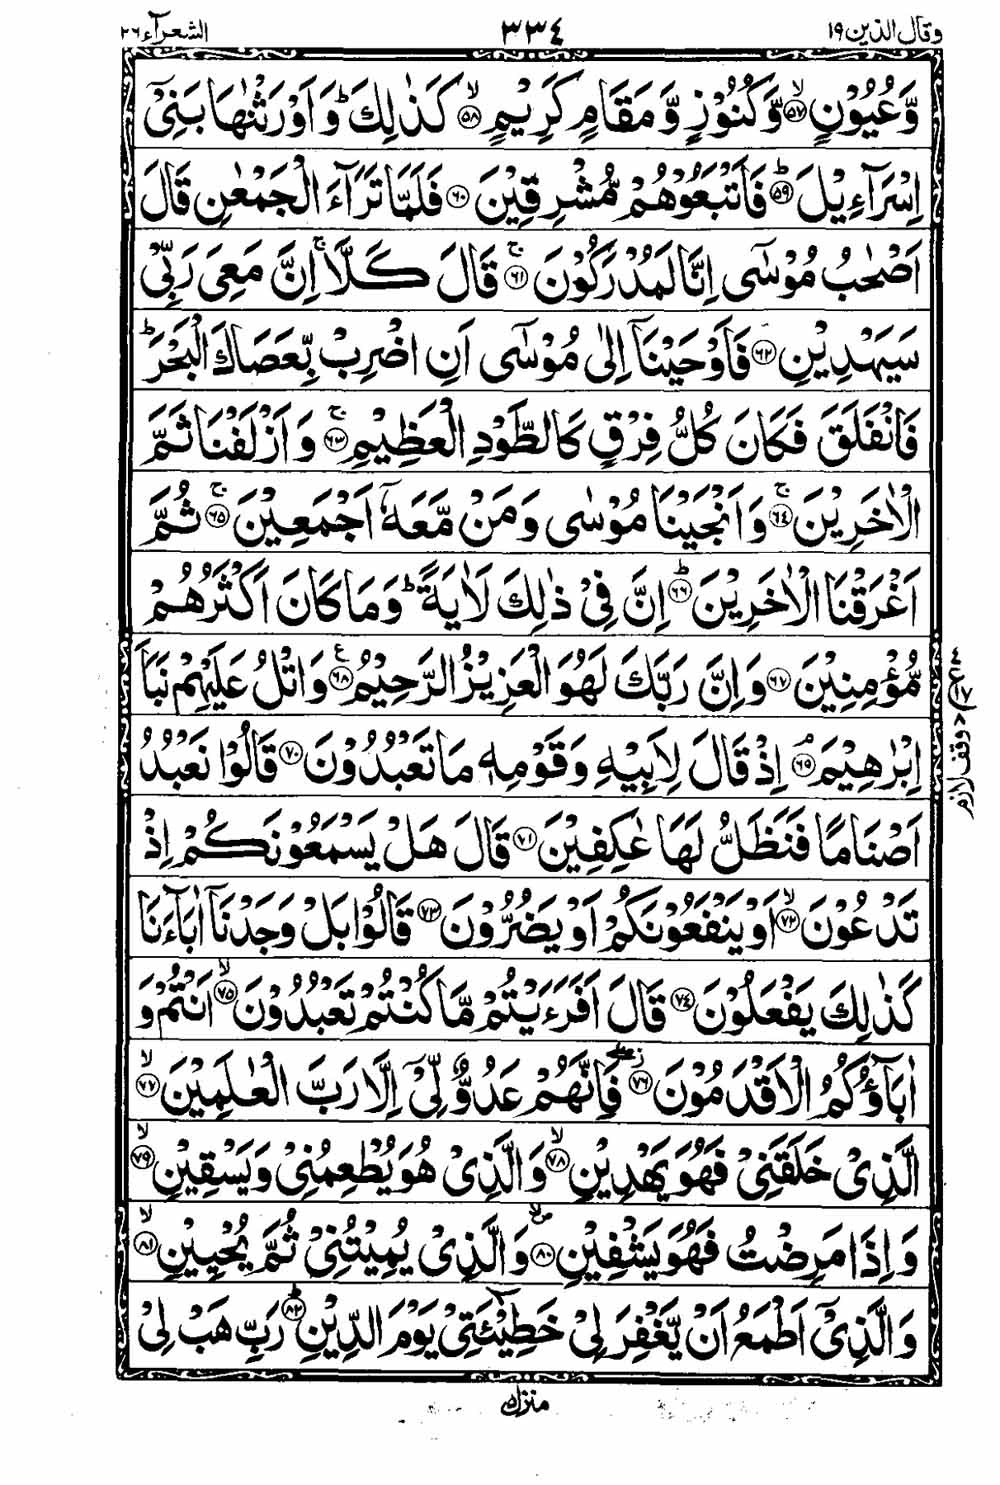 وقال الذين ١٩ ٣٣٤ الشعرآء ٢٦
وَّعُيُوْنٍ ۙ﴿۵۷﴾ وَّكُنُوْزٍ وَّمَقَامٍ كَرِيْمٍ ۙ﴿۵۸﴾ كَذٰلِكَ ؕ وَاَوْرَثْنٰهَا بَنِيْۤ
اِسْرَآءِيْلَ ؕ﴿۵۹﴾ فَاَتْبَعُوْهُمْ مُّشْرِقِيْنَ ﴿۶۰﴾ فَلَمَّا تَرَآءَ الْجَمْعٰنِ قَالَ
اَصْحٰبُ مُوْسٰٓى اِنَّا لَمُدْرَكُوْنَ ۚ﴿۶۱﴾ قَالَ كَلَّا ۚ اِنَّ مَعِىَ رَبِّىْ
سَيَهْدِيْنِ ﴿۶۲﴾ فَاَوْحَيْنَاۤ اِلٰى مُوْسٰٓى اَنِ اضْرِبْ بِّعَصَاكَ الْبَحْرَ ؕ
فَانْفَلَقَ فَكَانَ كُلُّ فِرْقٍ كَالطَّوْدِ الْعَظِيْمِ ۚ﴿۶۳﴾ وَاَزْلَفْنَا ثَمَّ
الْاٰخَرِيْنَ ۚ﴿۶۴﴾ وَاَنْجَيْنَا مُوْسٰى وَمَنْ مَّعَهٗۤ اَجْمَعِيْنَ ۚ﴿۶۵﴾ ثُمَّ
اَغْرَقْنَا الْاٰخَرِيْنَ ؕ﴿۶۶﴾ اِنَّ فِىْ ذٰلِكَ لَاٰيَةً ؕ وَمَا كَانَ اَكْثَرُهُمْ
مُّؤْمِنِيْنَ ﴿۶۷﴾ وَاِنَّ رَبَّكَ لَهُوَ الْعَزِيْزُ الرَّحِيْمُ ﴿۶۸﴾ع وَاتْلُ عَلَيْهِمْ نَبَاَ
اِبْرٰهِيْمَ ۘ﴿۶۹﴾ اِذْ قَالَ لِاَبِيْهِ وَقَوْمِهٖ مَا تَعْبُدُوْنَ ﴿۷۰﴾ قَالُوْا نَعْبُدُ
اَصْنَامًا فَنَظَلُّ لَهَا عٰكِفِيْنَ ﴿۷۱﴾ قَالَ هَلْ يَسْمَعُوْنَكُمْ اِذْ
تَدْعُوْنَ ۙ﴿۷۲﴾ اَوْ يَنْفَعُوْنَكُمْ اَوْ يَضُرُّوْنَ ﴿۷۳﴾ قَالُوْا بَلْ وَجَدْنَاۤ اٰبَآءَنَا
كَذٰلِكَ يَفْعَلُوْنَ ﴿۷۴﴾ قَالَ اَفَرَءَيْتُمْ مَّا كُنْتُمْ تَعْبُدُوْنَ ۙ﴿۷۵﴾ اَنْتُمْ وَ
اٰبَآؤُكُمُ الْاَقْدَمُوْنَ ۖز﴿۷۶﴾ فَاِنَّهُمْ عَدُوٌّ لِّىْۤ اِلَّا رَبَّ الْعٰلَمِيْنَ ۙ﴿۷۷﴾
الَّذِىْ خَلَقَنِىْ فَهُوَ يَهْدِيْنِ ۙ﴿۷۸﴾ وَالَّذِىْ هُوَ يُطْعِمُنِىْ وَيَسْقِيْنِ ۙ﴿۷۹﴾
وَاِذَا مَرِضْتُ فَهُوَ يَشْفِيْنِ ﴿۸۰﴾ وَالَّذِىْ يُمِيْتُنِىْ ثُمَّ يُحْيِيْنِ ۙ﴿۸۱﴾
وَالَّذِىْۤ اَطْمَعُ اَنْ يَّغْفِرَ لِىْ خَطِيْٓئَتِىْ يَوْمَ الدِّيْنِ ؕ﴿۸۲﴾ رَبِّ هَبْ لِىْ
وقف لازم
منزل ۵